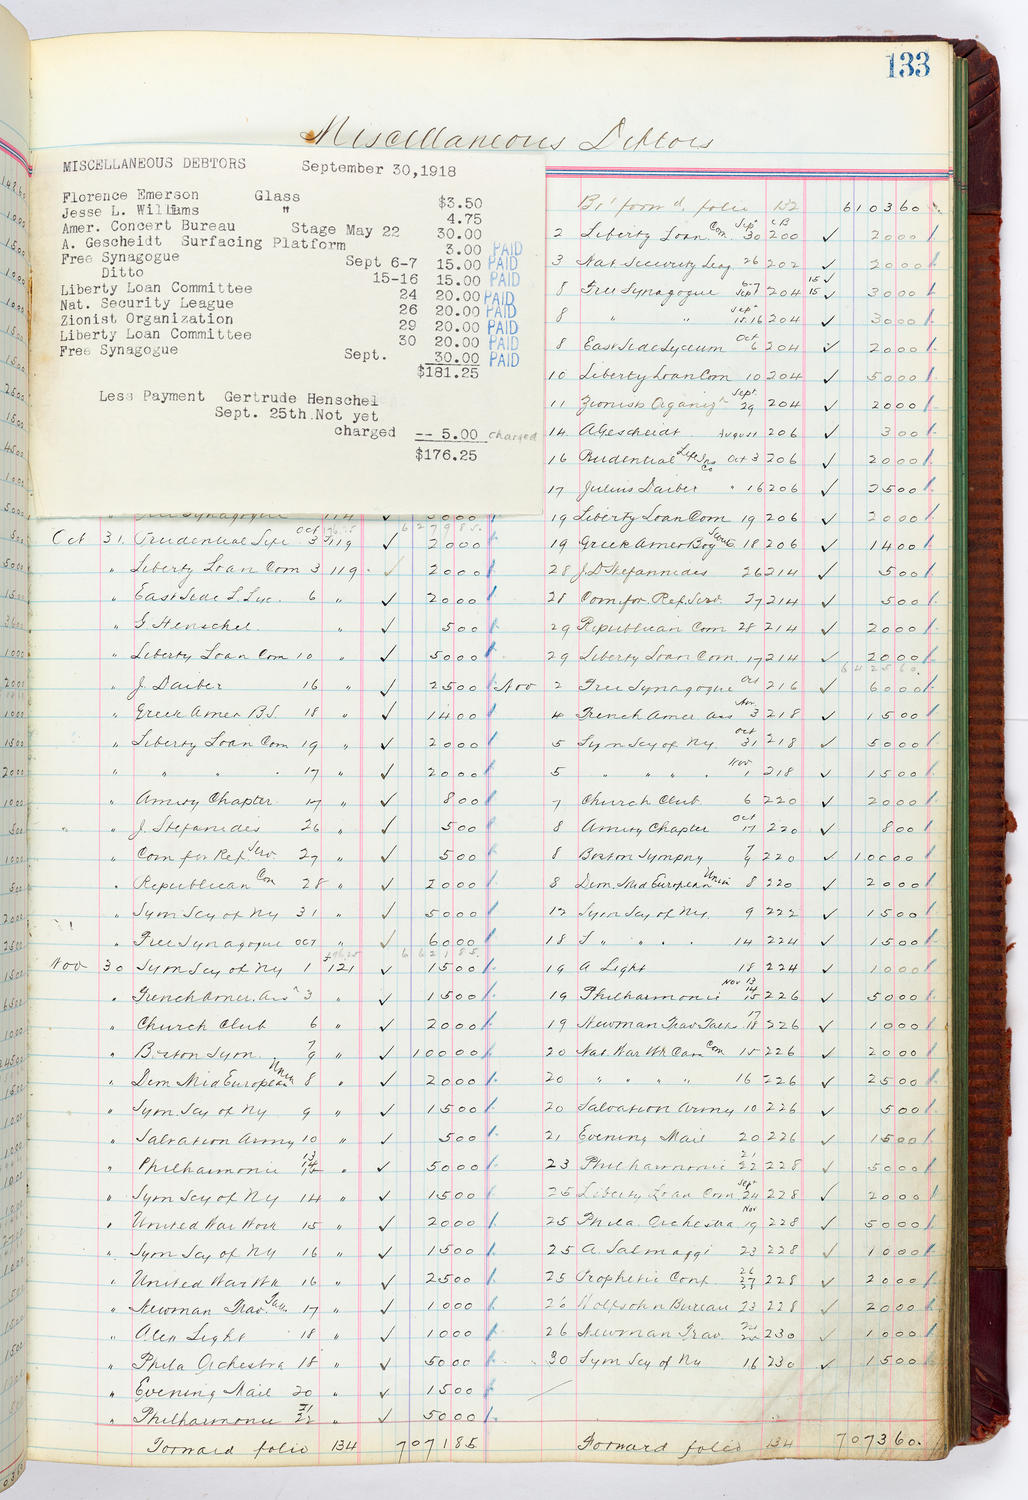 133
Miscellaneous Debtors
MISCELLANEOUS DEBTORS September 30,1918
Florence Emerson Glass $3.50
Jesse L. Williams " 4.75
Amer. Concert Bureau Stage May 22 30.00
A. Gescheidt Surfacing Platform 3.00 PAID
Free Synagogue Sept 6-7 15.00 PAID
Ditto 15-16 15.00 PAID
Liberty Loan Committee 24 20.00 PAID
Nat. Security League 26 20.00 PAID
Zionist Organization 29 20.00 PAID
Liberty Loan Committee 30 20.00 PAID
Free Synagogue Sept. 30.00 PAID
$181.25
Less Payment Gertrude Henschel
Sept. 25th Not yet
charged -- 5.00 charged
$176.25
Free Synagogue 114 5000
Oct 31 Prudential Life Oct 3 119 ✓ 2000
" Liberty Loan Com 3 119 ✓ 2000
" East Side L. Lyc. 6 " ✓ 2000
" G Henschel " ✓ 500
" Liberty Loan Com 10 ✓ 5000
" J. Daiber 16 " ✓ 2500
" Greek Amer B.S. 18 " ✓ 1400
" Liberty Loan Com 19 " ✓ 2000
" " " 17 " ✓ 2000
" Amity Chapter 17 " ✓ 800
" " J. Stefanides 26 " ✓ 500
" Com for Ref. Serv. 27 " ✓ 500
" Republican Com 28 " ✓ 2000
" Sym Scy of Ny 31 " ✓ 5000
" Free Synagogue Oct " ✓ 6000
Nov 30 Sym Scy of Ny 1 121 ✓ 1500
" French Amer. Ass'n 3 " ✓ 1500
" Church Club 6 " ✓ 2000
" Boston Sym. 7 9 " ✓ 10000
" Dem Mid European Union 8 " ✓ 2000
" Sym. Scy of Ny 9 " ✓ 1500
" Salvation Army 10 " ✓ 500
" Philharmonic 13 14 15 " ✓ 5000
" Sym Scy of Ny 14 " ✓ 1500
" United War Work 15 " ✓ 2000
" Sym Scy of Ny 16 " ✓ 1500
" United War Wk 16 " ✓ 2500
" Newman Trav. Talk 17 " ✓ 1000
" Alex Light 18 " ✓ 1000
" Phila Orchestra 18 " ✓ 5000
" Evening Mail 20 " ✓ 1500
" Philharmonic 21 22 " ✓ 5000
Forward folio 134 707185
Bro't forw'd folio 132 610360
2 Liberty Loan Com. Sept 30 CB 200 ✓ 2000
3 Nat Security Leag 26 202 ✓ 2000
8 Free Synagogue 6-7 Sept 204 15 15 ✓ 3000
8 " " Sept 15.16 204 ✓ 3000
8 East Side Lyceum Oct 6 204 ✓ 2000
10 Liberty Loan Com 10 204 ✓ 5000
11 Zionish Organiz'n Sept. 29 204 ✓ 2000
14 A Gescheidt August 206 ✓ 300
16 Prudential Life Ins Co Oct 3 206 ✓ 2000
17 Julius Daiber " 16 206 ✓ 2500
19 Liberty Loan Com 19 206 ✓ 2000
19 Greek Amer Boy Scouts 18 206 ✓ 1400
28 J. D Stefannides 26 214 ✓ 500
28 Com. for. Ref. Serv. 27 214 ✓ 500
29 Republican Com 28 214 ✓ 2000
29 Liberty Loan Com. 17 214 ✓ 2000
642560.
Nov 2 Free Synagogue Oct 216 ✓ 6000
4 French Amer Ass Nov. 3 218 ✓ 1500
5 Sym Scy of Ny. Oct 31 218 ✓ 5000
5 " " " " Nov 1 218 ✓ 1500
7 Church Club. 6 220 ✓ 2000
8 Amity Chapter Oct 17 220 ✓ 800
8 Boston Sympny 7 9 220 ✓ 10000
8 Dem. Mid European Union 8 220 ✓ 2000
12 Sym Scy of Ny. 9 222 ✓ 1500
18 S " " . . 14 224 ✓ 1500
19 A Light 18 224 ✓ 1000
19 Philharmonic Nov 13 14 15 226 ✓ 5000
19 Newman Trav. Talk 17 18 226 ✓ 1000
20 Nat. War Wk Cam Com 15 226 ✓ 2000
20 " " " " 16 226 ✓ 2500
20 Salvation Army 10 226 ✓ 500
21 Evening Mail 20 226 ✓ 1500
23 Philharmonic 21 22 228 ✓ 5000
25 Liberty Loan Com Sept 24 228 ✓ 2000
25 Phila. Orchestra Nov 19 228 ✓ 5000
25 A. Salmaggi 23 228 ✓ 1000
25 Prophetic Conf. 26 27 28 228 ✓ 2000
26 Wolfsohn Bureau 23 228 ✓ 2000
26 Newman Trav. 24 230 ✓ 1000
30 Sym Scy of Ny 16 230 ✓ 1500
Forward folio 134 707360.